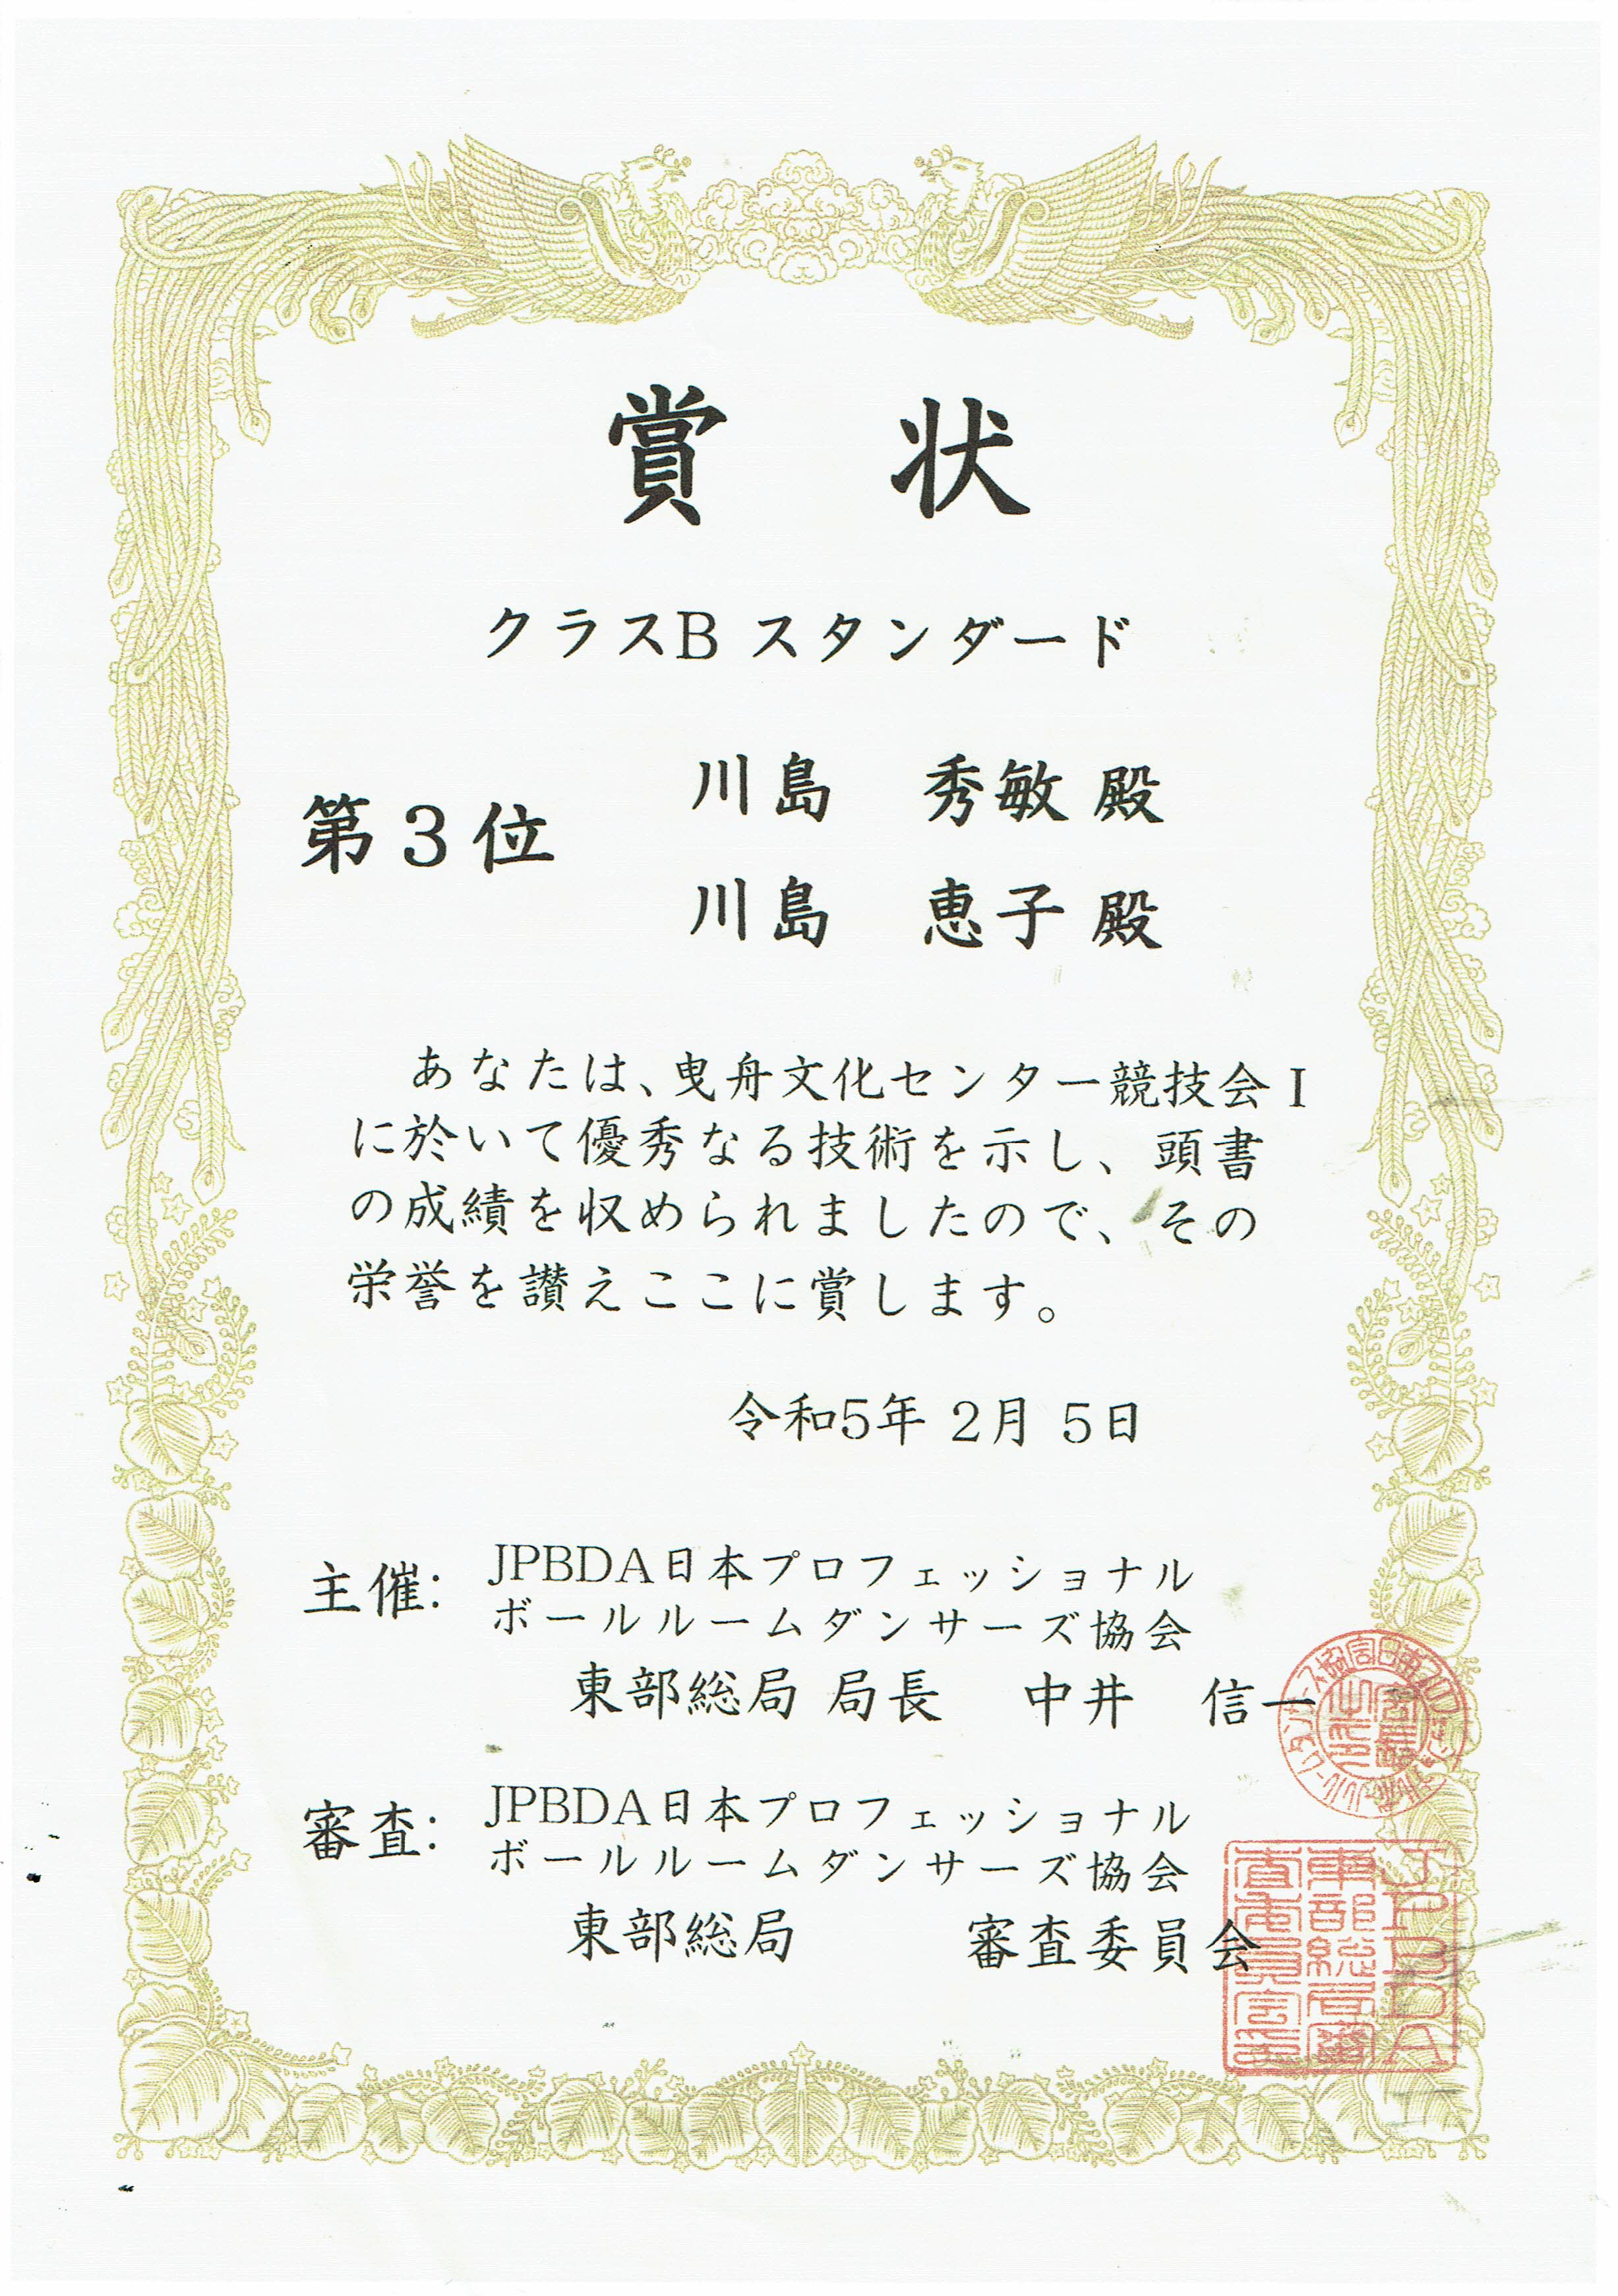 賞 状
クラスB スタンダード
第３位
川島 秀敏 殿
川島 恵子 殿
あなたは、曳舟文化センター競技会Ⅰ
に於いて優秀なる技術を示し、頭書
の成績を収められましたので、その
栄誉を讃えここに賞します。
令和5年 2月 5日
主催:
JPBDA日本プロフェッショナル
ボールルームダンサーズ協会
東部総局 局長 中井 信一
審査:
JPBDA日本プロフェッショナル
ボールルームダンサーズ協会
東部総局 審査委員会
JPBDA
東部総局審
査委員会之